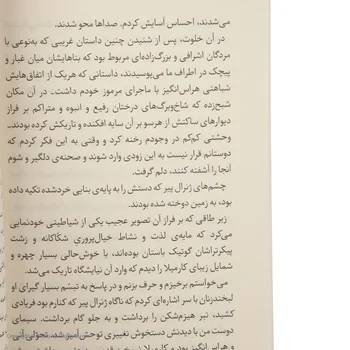 می‌شدند، احساس آسایش کردم. صداها محو شدند.
در آن خلوت، پس از شنیدن چنین داستان غریبی که به‌نوعی با
مردگان اشرافی و بزرگ‌زاده‌ای مربوط بود که بناهایشان میان غبار و
پیچک در اطراف ما می‌پوسیدند، داستانی که هریک از اتفاق‌هایش
شباهتی هراس‌انگیز با ماجرای مرموز خودم داشت- در آن مکان
شبح‌زده که شاخ‌وبرگ‌های درختان رفیع و انبوه و متراکم بر فراز
دیوارهای ساکتش از هرسو بر آن سایه افکنده و تاریکش کرده بودند-
وحشتی کم‌کم در وجودم رخنه کرد و وقتی به این فکر کردم که
دوستانم قرار نیست به این زودی وارد شوند و صحنه‌ی دلگیر و شوم
آنجا را آشفته کنند، دلم گرفت.
چشم‌های ژنرال پیر که دستش را به پایه‌ی بنایی خردشده تکیه داده
بود، به زمین دوخته شده بودند.
زیر طاقی که بر فراز آن تصویر عجیب یکی از شیاطینی خودنمایی
می‌کرد که مایه‌ی لذت و نشاط خیال‌پروریِ شکّاکانه و زشت
پیکرتراشان گوتیک باستان بوده‌اند، با خوش‌حالی بسیار چهره و
شمایل زیبای کارمیلا را دیدم که وارد آن نیایشگاه تاریک می‌شد.
می‌خواستم برخیزم و حرف بزنم و در پاسخ به تبسّم بسیار گیرای او
لبخندزنان با سر اشاره‌ای کردم که ناگاه ژنرال پیر که کنارم بود فریادی
کشید، تبر هیزم‌شکن را برداشت و به جلو گام برداشت. سیمای
دوست من با دیدنش دستخوش تغییری توحش‌آمیز شد. تحولی آنی
و هراس‌انگیز بود و کارمیلا